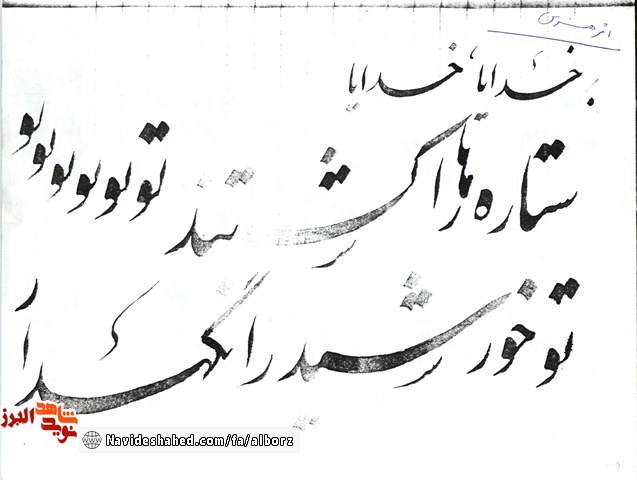 اثر هنری
خدایا، خدایا
ستاره ها را کشتند تو تو تو تو تو تو
تو خورشید را نگهدار
شاهد نوید البرز
Navideshahed.com/fa/alborz